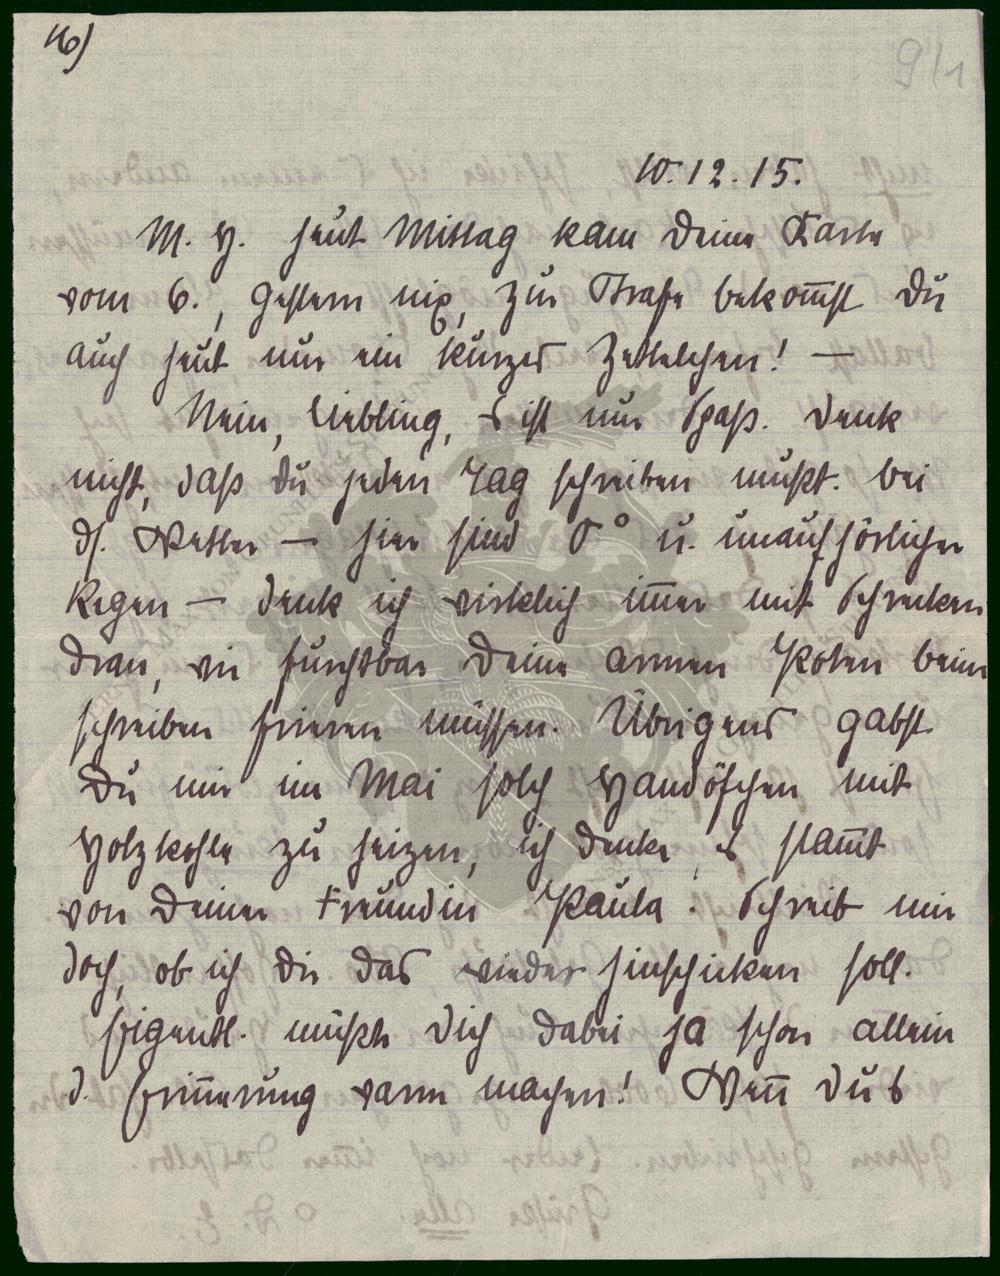 16)
9/1
10.12.15.
M. H. heut Mittag kam Deine Karte
vom 6., gestern nix, zur Strafe bekom̅st Du
auch heut nur ein kurzes Zettelchen! —
Nein, Liebling, es ist nur Spaß. Denk
nicht, daß Du jeden Tag schreiben mußt. bei
ds. Wetter — hier sind 0° u. unaufhörlicher
Regen — denk ich wirklich im̅er mit Schrecken
dran, wie furchtbar Deine armen Pfoten beim
schreiben frieren müssen. Übrigens gabst
Du mir im Mai solch Handöfchen mit
Holzkohle zu heizen, ich denke, es stam̅t
von Deiner Freundin Paula. Schreib mir
doch, ob ich Dir das wieder hinschicken soll.
Eigentl. müßte Dich dabei ja schon allein
d. Erin̅erung warm machen! Wen̅ Du's